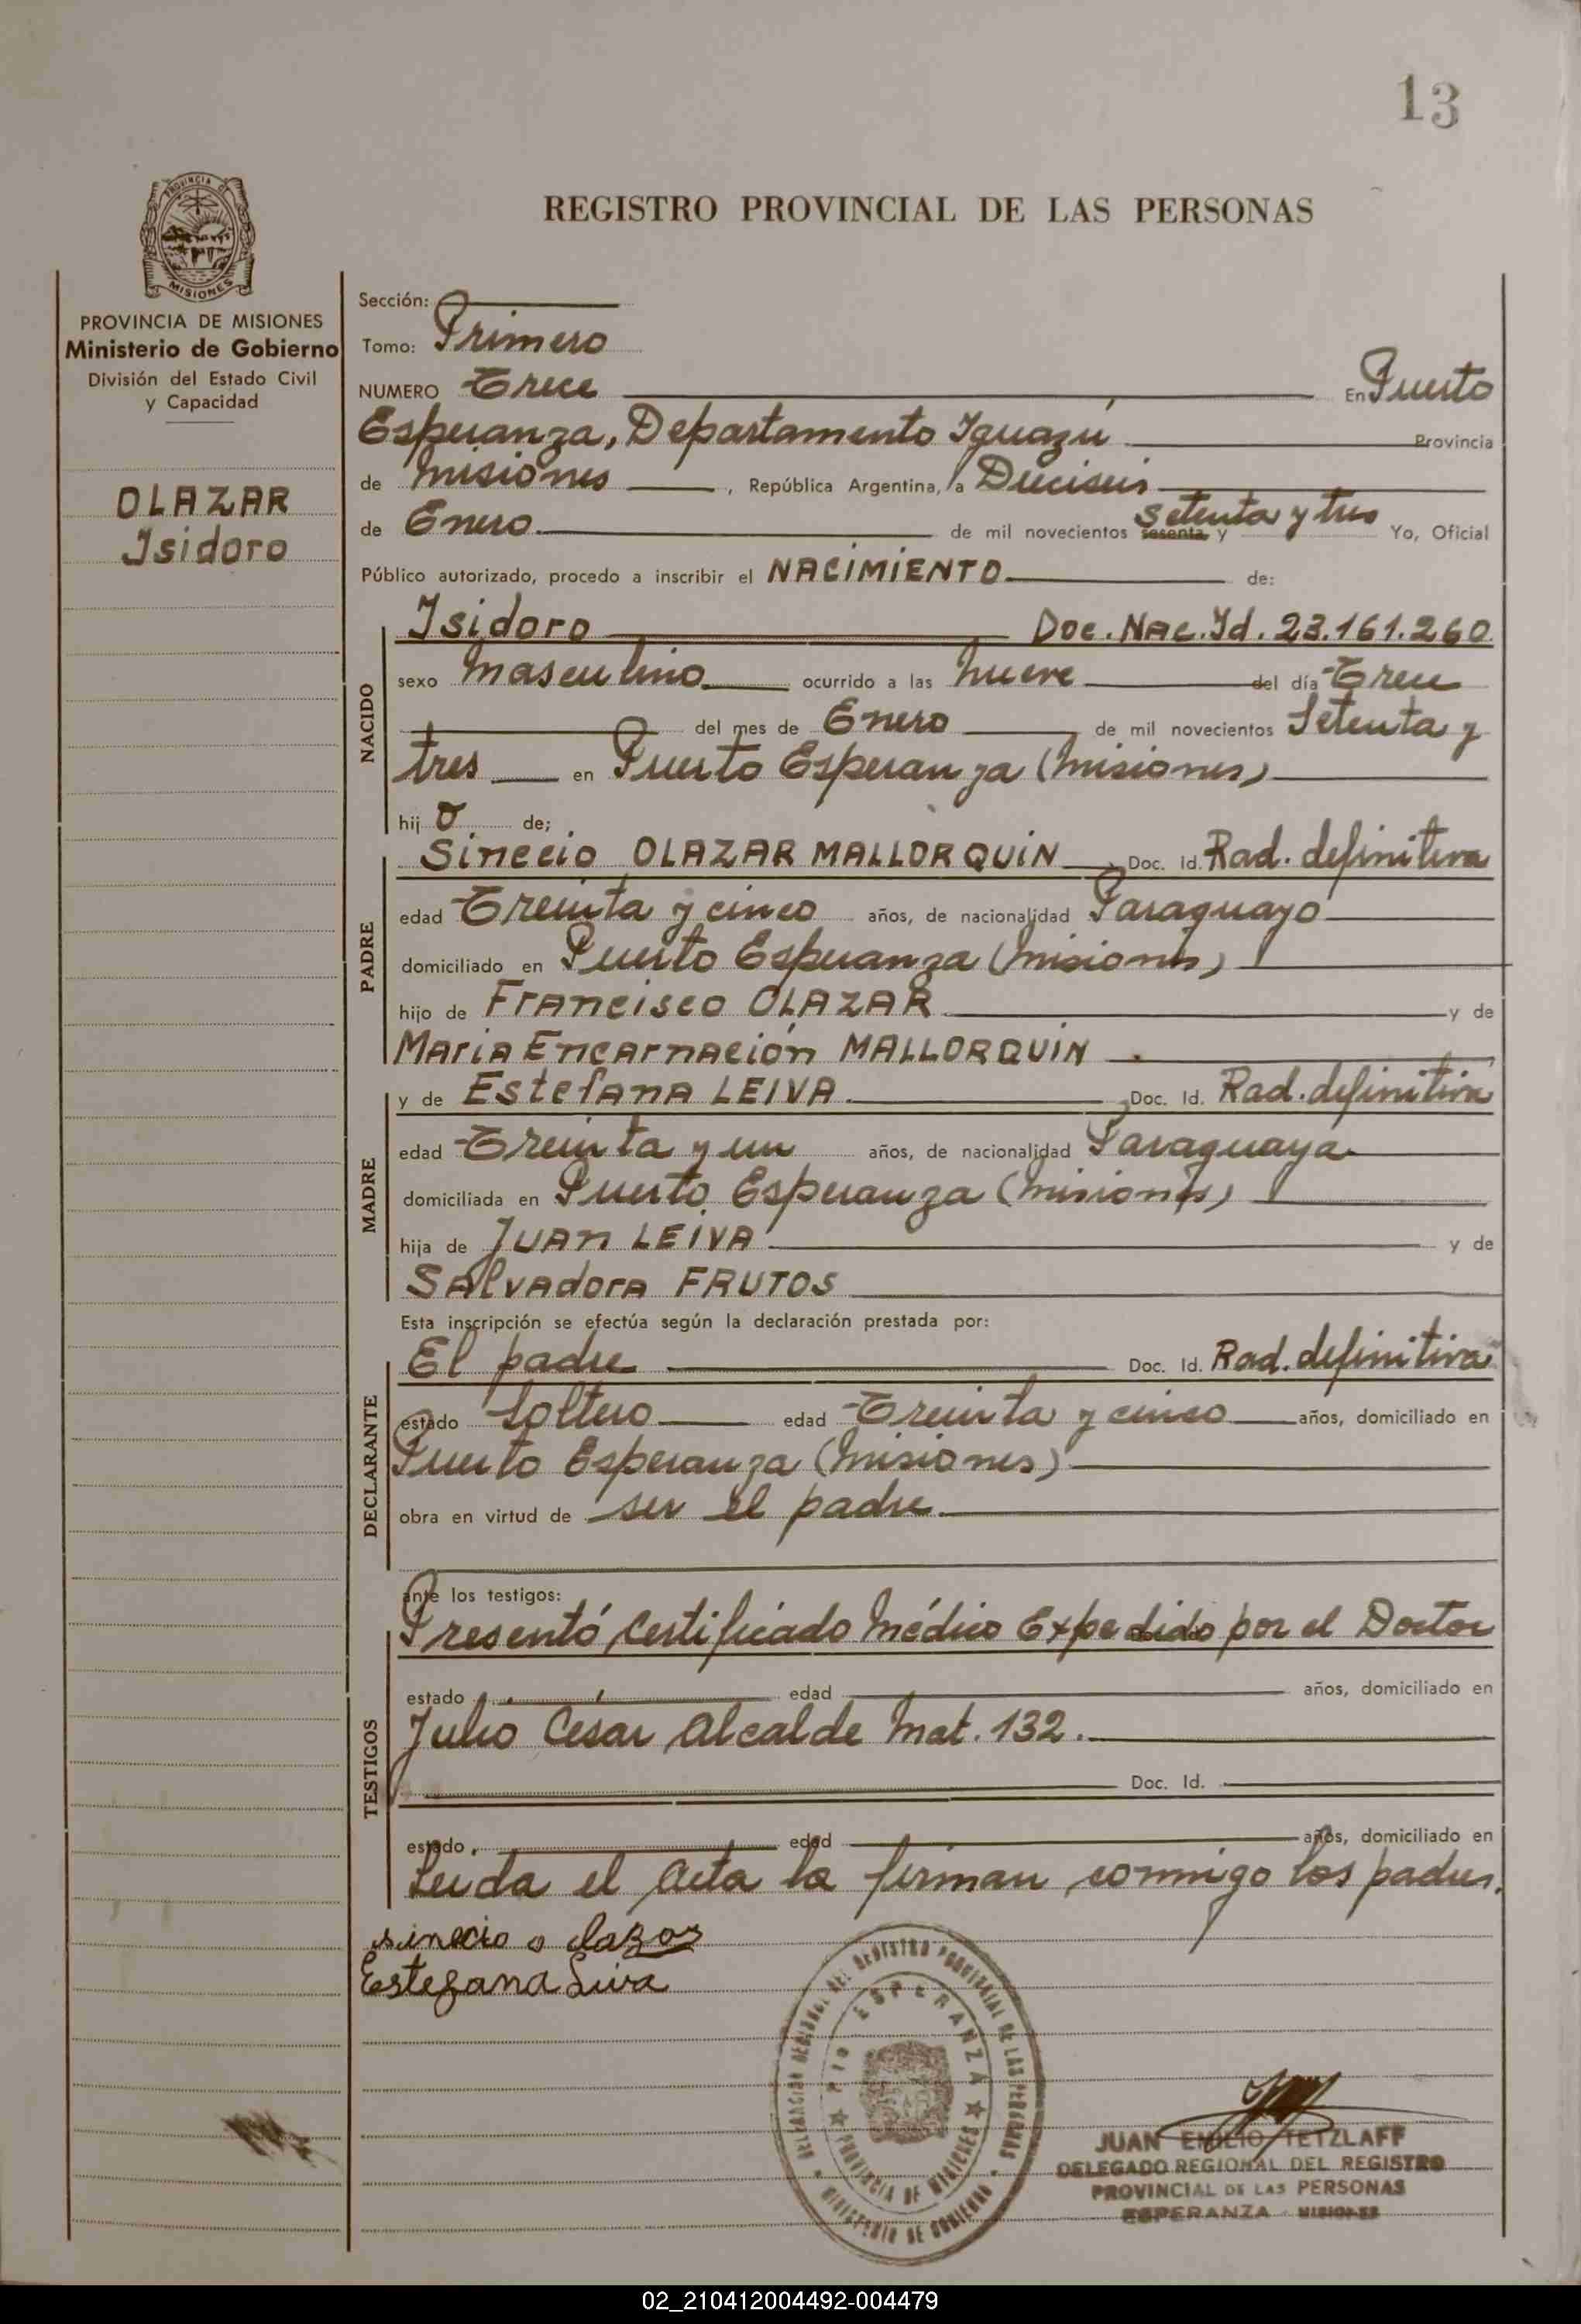 13
PROVINCIA DE
MISIONES
REGISTRO PROVINCIAL DE LAS PERSONAS
PROVINCIA DE MISIONES
Ministerio de Gobierno
División del Estado Civil
y Capacidad
OLAZAR
Isidoro
Sección:
Tomo: Primero
NUMERO Trece En Puerto
Esperanza, Departamento Iguazú Provincia
de Misiones, República Argentina, a Dieciseis
de Enero de mil novecientos sesenta y Setenta y tres Yo, Oficial
Público autorizado, procedo a inscribir el NACIMIENTO de:
NACIDO
Isidoro Doc. Nac. Id. 23.161.260
sexo Masculino ocurrido a las Nueve del día Trece
del mes de Enero de mil novecientos Setenta y
tres en Puerto Esperanza (Misiones)
hij o de;
PADRE
Sinecio OLAZAR MALLORQUIN Doc. Id. Rad. definitiva
edad Treinta y cinco años, de nacionalidad Paraguayo
domiciliado en Puerto Esperanza (Misiones)
hijo de Francisco OLAZAR y de
Maria Encarnación MALLORQUIN
MADRE
y de Estefana LEIVA Doc. Id. Rad. definitiva
edad Treinta y un años, de nacionalidad Paraguaya
domiciliada en Puerto Esperanza (Misiones)
hija de Juan LEIVA y de
Salvadora FRUTOS
Esta inscripción se efectúa según la declaración prestada por:
DECLARANTE
El padre Doc. Id. Rad. definitiva
estado Soltero edad Treinta y cinco años, domiciliado en
Puerto Esperanza (Misiones)
obra en virtud de ser el padre.
ante los testigos:
TESTIGOS
Presentó Certificado Médico Expedido por el Doctor
estado edad años, domiciliado en
Julio César Alcalde Mat. 132.
Doc. Id.
estado edad años, domiciliado en
Leida el Acta la firman conmigo los padres.
sinecio olazar
Estefana Leiva
DELEGACION REGIONAL DEL REGISTRO PROVINCIAL DE LAS PERSONAS
PTO ESPERANZA
PROVINCIA DE MISIONES
MINISTERIO DE GOBIERNO
JUAN EMILIO TETZLAFF
DELEGADO REGIONAL DEL REGISTRO
PROVINCIAL DE LAS PERSONAS
ESPERANZA - MISIONES
02_210412004492-004479